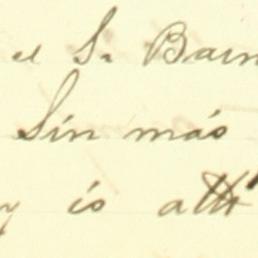 el Sr Bain
Sin más
y is att